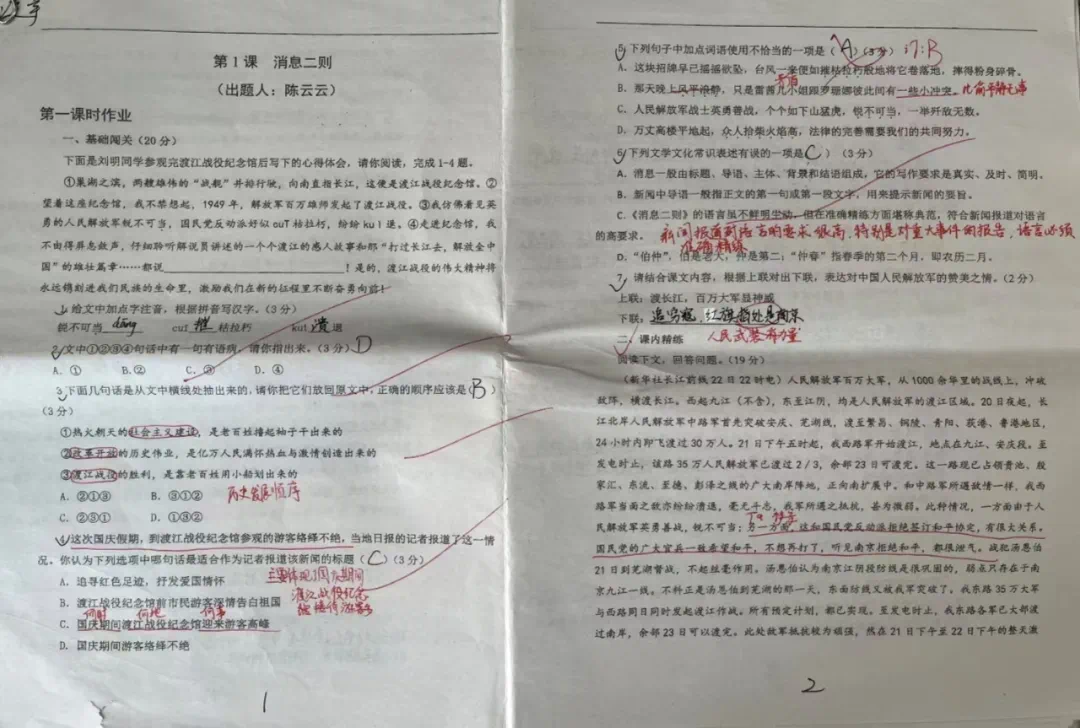 第1课 消息二则
(出题人：陈云云)
第一课时作业
一、基础闯关(20分)
下面是刘明同学参观完渡江战役纪念馆后写下的心得体会，请你阅读，完成1-4题。
①巢湖之滨，两艘雄伟的“战舰”并排行驶，向南直指长江，这便是渡江战役纪念馆。②
望着这座纪念馆，我不禁想起，1949年，解放军百万雄师发起了渡江战役。③我仿佛看见英
勇的人民解放军锐不可当，国民党反动派好似cuī枯拉朽，纷纷kuì退。④走进纪念馆，我
不由得屏息敛声，仔细聆听解说员讲述的一个个渡江的感人故事和那“打过长江去，解放全中
国”的雄壮篇章……都说！是的，渡江战役的伟大精神将
永远镌刻进我们民族的生命里，激励我们在新的征程里不断奋勇向前！
1.给文中加点字注音，根据拼音写汉字。(3分)
锐不可当 dāng cuī 摧 枯拉朽 kuì 溃 退
2.文中①②③④句话中有一句有语病，请你指出来。(3分) D
A. ① B.② C. ③ D. ④
3.下面几句话是从文中横线处抽出来的，请你把它们放回原文中，正确的顺序应该是(B)
(3分)
①热火朝天的社会主义建设，是老百姓撸起袖子干出来的
②改革开放的历史伟业，是亿万人民满怀热血与激情创造出来的
③渡江战役的胜利，是靠老百姓用小船划出来的
A. ②①③ B. ③①② 历史发展顺序
C. ②③① D. ①③②
4.这次国庆假期，到渡江战役纪念馆参观的游客络绎不绝，当地日报的记者报道了这一情
况。你认为下列选项中哪句话最适合作为记者报道该新闻的标题(C)(3分)
A. 追寻红色足迹，抒发爱国情怀 主要体现国庆期间
B. 渡江战役纪念馆前市民游客深情告白祖国 渡江战役纪念
何时 何地 何事
C. 国庆期间渡江战役纪念馆迎来游客高峰
D. 国庆期间游客络绎不绝
1
5.下列句子中加点词语使用不恰当的一项是(A)(3分) 订:B
A. 这块招牌早已摇摇欲坠，台风一来便如摧枯拉朽般地将它卷落地，摔得粉身碎骨。
矛盾
B. 那天晚上风平浪静，只是雷茜儿小姐跟罗珊娜彼此间有一些小冲突。比喻平静无事
C. 人民解放军战士英勇善战，个个如下山猛虎，锐不可当，一举歼敌无数。
D. 万丈高楼平地起，众人拾柴火焰高，法律的完善需要我们的共同努力。
6.下列文学文化常识表述有误的一项是(C)(3分)
A. 消息一般由标题、导语、主体、背景和结语组成，它的写作要求是真实、及时、简明。
B. 新闻中导语一般指正文的第一句或第一段文字，用来提示新闻的要旨。
C.《消息二则》的语言虽不鲜明生动，但在准确精练方面堪称典范，符合新闻报道对语言
的高要求。 新闻报道对语言的要求很高，特别是对重大事件的报告，语言必须
准确精练
D. “伯仲”，伯是老大，仲是第二；“仲春”指春季的第二个月，即农历二月。
7.请结合课文内容，根据上联对出下联，表达对中国人民解放军的赞美之情。(2分)
上联：渡长江，百万大军显神威
下联：追穷寇，红旗招处是南京
二、课内精练 人民武装有力量
阅读下文，回答问题。(19分)
(新华社长江前线22日22时电)人民解放军百万大军，从1000余华里的战线上，冲破
敌阵，横渡长江。西起九江(不含)，东至江阴，均是人民解放军的渡江区域。20日夜起，长
江北岸人民解放军中路军首先突破安庆、芜湖线，渡至繁昌、铜陵、青阳、荻港、鲁港地区，
24小时内即飞渡过30万人。21日下午五时起，我西路军开始渡江，地点在九江、安庆段。至
发电时止，该路35万人民解放军已渡过2/3，余部23日可渡完。这一路现已占领贵池、殷
家汇、东流、至德、彭泽之线的广大南岸阵地，正向南扩展中。和中路军所遇敌情一样，我西
路军当面之敌亦纷纷溃退，毫无斗志，我军所遇之抵抗，甚为微弱。此种情况，一方面由于人
民解放军英勇善战，锐不可当；另一方面，这和国民党反动派拒绝签订和平协定，有很大关系。
国民党的广大官兵一致希望和平，不想再打了，听见南京拒绝和平，都很泄气。战犯汤恩伯
21日到芜湖督战，不起丝毫作用。汤恩伯认为南京江阴段防线是很巩固的，弱点只存在于南
京九江一线。不料正是汤恩伯到芜湖的那一天，东面防线又被我军突破了。我东路35万大军
与西路同日同时发起渡江作战。所有预定计划，都已实现。至发电时止，我东路各军已大部渡
过南岸，余部23日可以渡完。此处敌军抵抗较为顽强，然在21日下午至22日下午的整天激
2